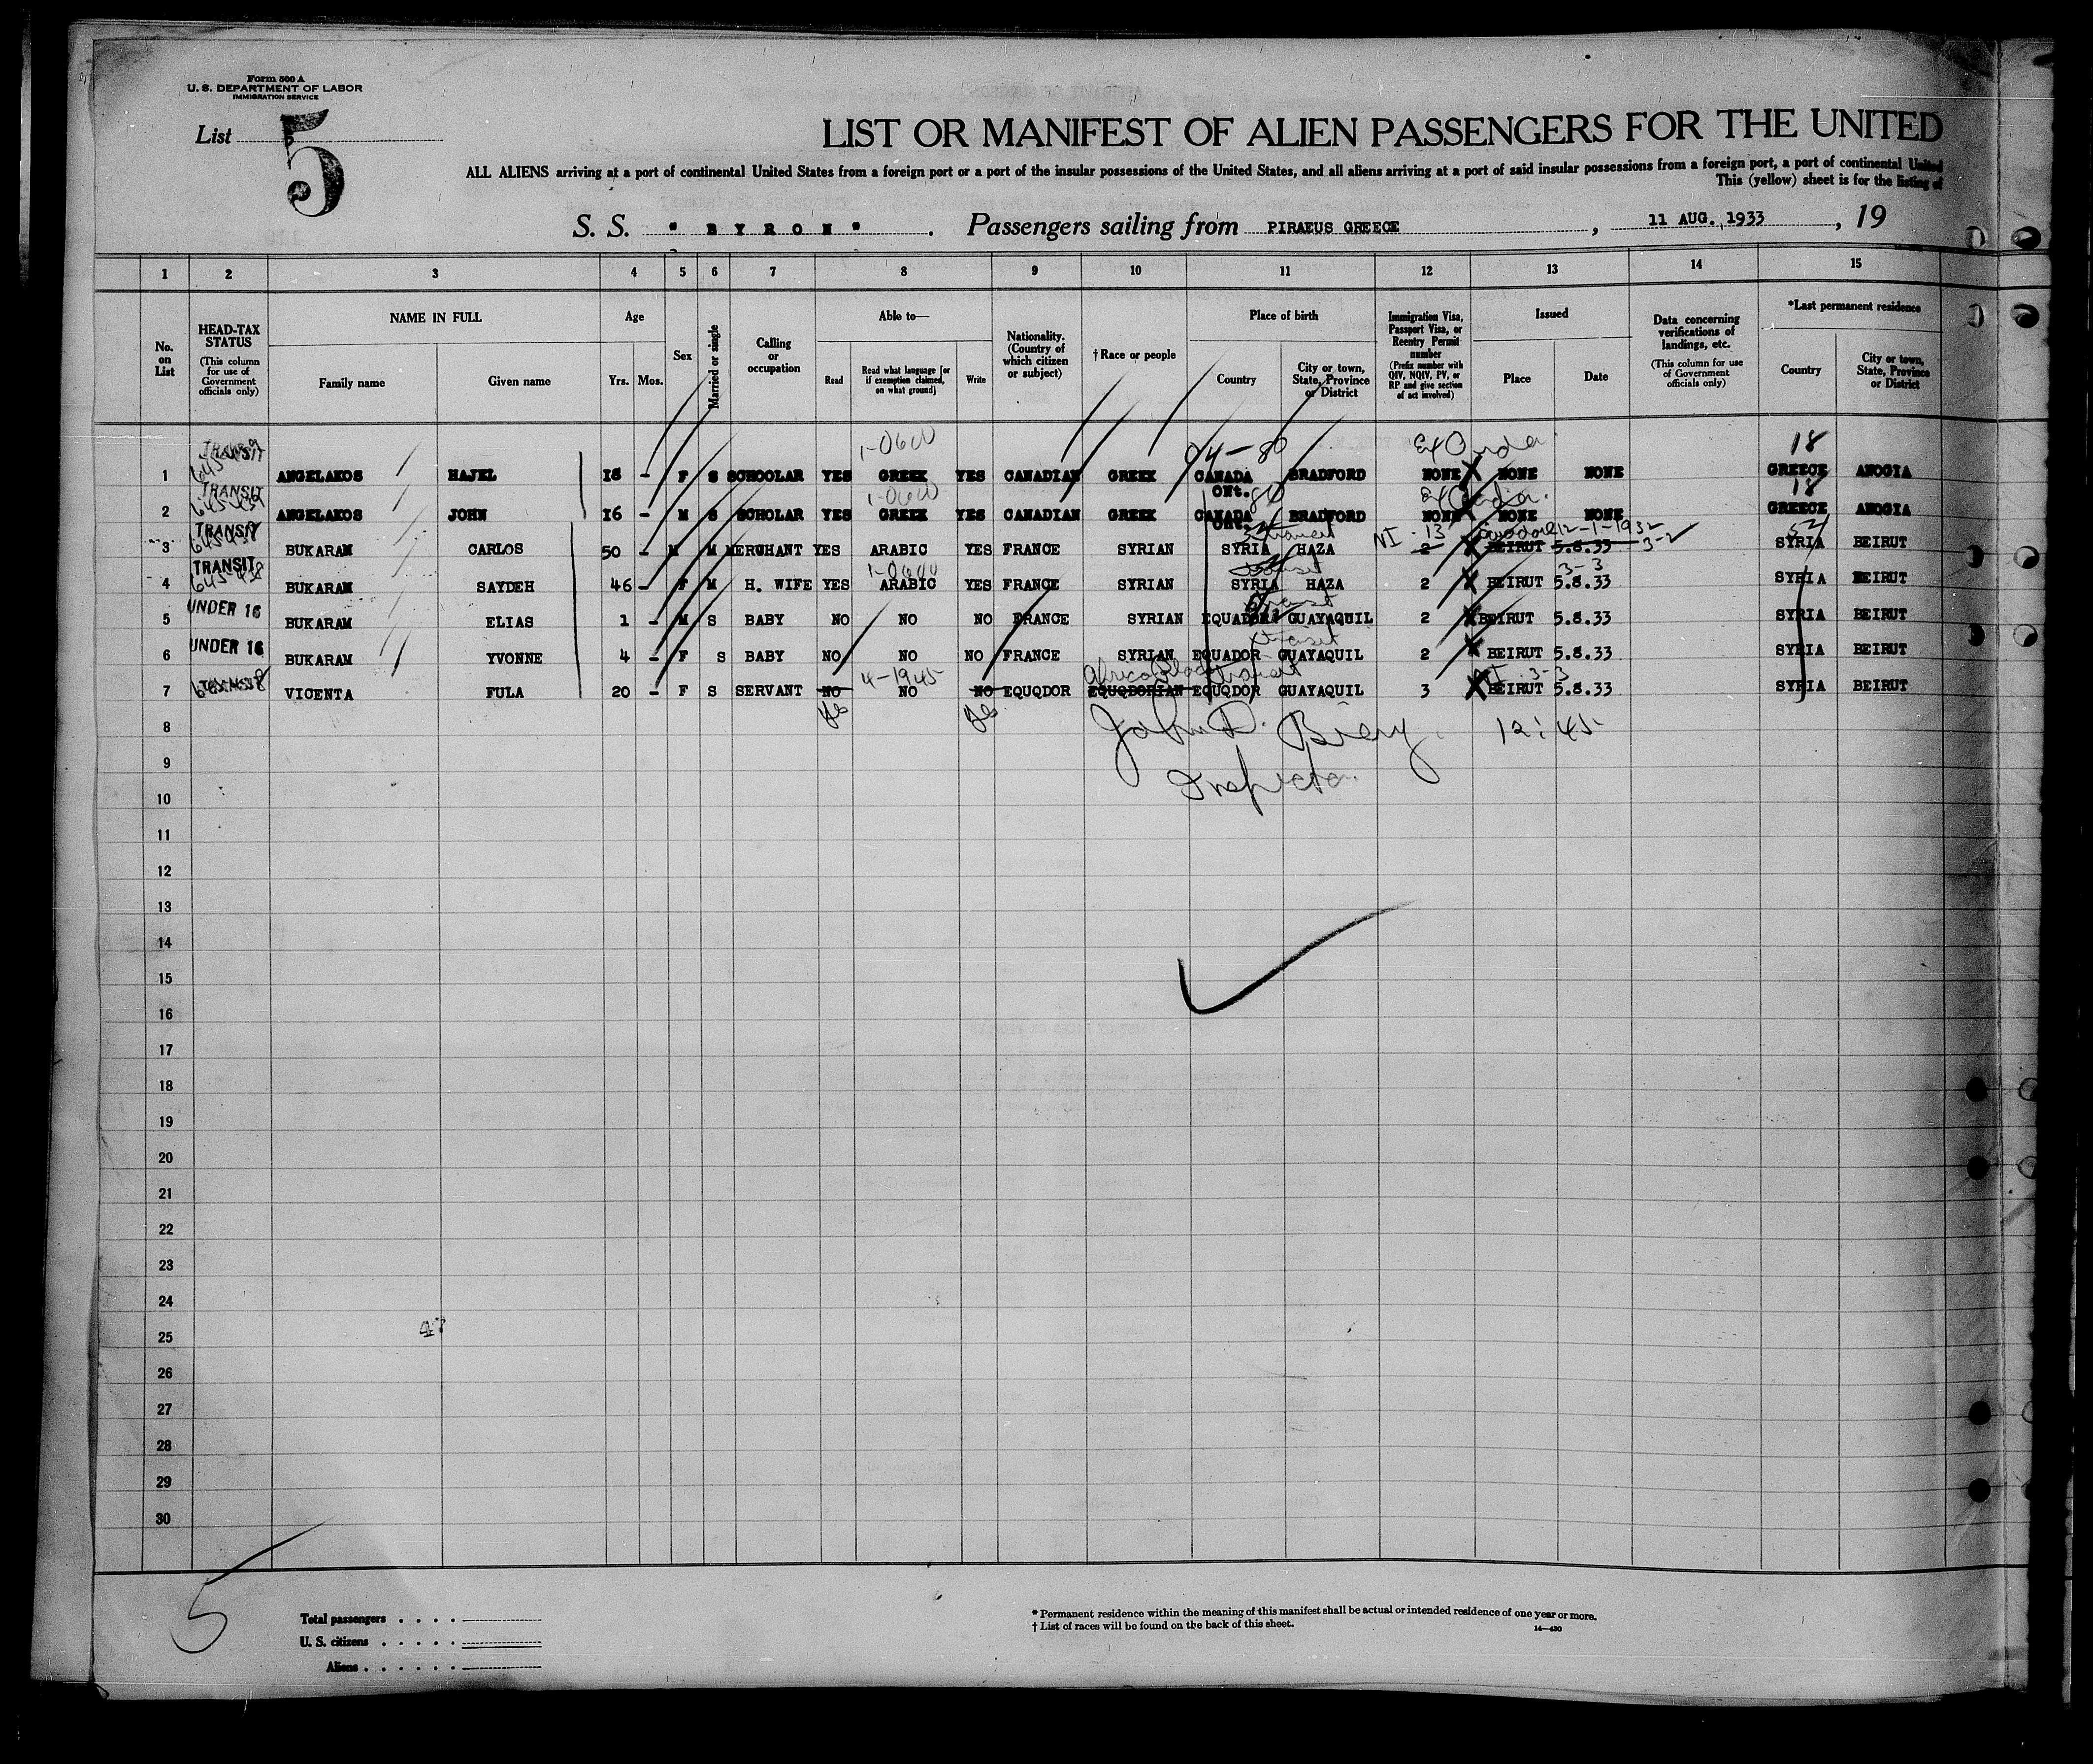 Form 500 A
U. S. DEPARTMENT OF LABOR
IMMIGRATION SERVICE
List 5
LIST OR MANIFEST OF ALIEN PASSENGERS FOR THE UNITED
ALL ALIENS arriving at a port of continental United States from a foreign port or a port of the insular possessions of the United States, and all aliens arriving at a port of said insular possessions from a foreign port, a port of continental United
This (yellow) sheet is for the listing of
S. S. "BYRON". Passengers sailing from PIRAEUS GREECE, 11 AUG. 1933, 19
1 2 3 4 5 6 7 8 9 10 11 12 13 14 15
No. on List
HEAD-TAX STATUS (This column for use of Government officials only)
NAME IN FULL
Family name Given name
Age
Yrs. Mos.
Sex
Married or single
Calling or occupation
Able to—
Read Read what language [or if exemption claimed, on what ground] Write
Nationality. (Country of which citizen or subject)
† Race or people
Place of birth
Country City or town, State, Province or District
Immigration Visa, Passport Visa, or Reentry Permit number (Prefix number with QIV, NQIV, PV, or RP and give section of act involved)
Issued
Place Date
Data concerning verifications of landings, etc. (This column for use of Government officials only)
*Last permanent residence
Country City or town, State, Province or District
TRANSIT 1-0600 04-80 18
1 ANGELAKOS HAJEL 18 - F S SCHOOLAR YES GREEK YES CANADIAN GREEK CANADA BRADFORD NONE NONE NONE GREECE ANOGIA
TRANSIT 1-0600 Ont. 80 18
2 ANGELAKOS JOHN 16 - M S SCHOLAR YES GREEK YES CANADIAN GREEK CANADA BRADFORD NONE NONE NONE GREECE ANOGIA
TRANSIT Ont. transit NI 13 12-1-1932 54
3 BUKARAM CARLOS 50 - M M MERCHANT YES ARABIC YES FRANCE SYRIAN SYRIA HAZA 2 BEIRUT 5.8.33 3-2 SYRIA BEIRUT
TRANSIT 1-0600 transit 3-3
4 BUKARAM SAYDEH 46 - F M H. WIFE YES ARABIC YES FRANCE SYRIAN SYRIA HAZA 2 BEIRUT 5.8.33 SYRIA BEIRUT
UNDER 16 transit
5 BUKARAM ELIAS 1 - M S BABY NO NO NO FRANCE SYRIAN EQUADOR GUAYAQUIL 2 BEIRUT 5.8.33 SYRIA BEIRUT
UNDER 16 transit
6 BUKARAM YVONNE 4 - F S BABY NO NO NO FRANCE SYRIAN EQUADOR GUAYAQUIL 2 BEIRUT 5.8.33 SYRIA BEIRUT
TRANSIT 4-1945 African Black transit 3-3
7 VICENTA FULA 20 - F S SERVANT NO NO NO EQUQDOR EQUQDORIAN EQUQDOR GUAYAQUIL 3 BEIRUT 5.8.33 SYRIA BEIRUT
yes yes
8 John D. Biery 12:45
9 Inspector
10
11
12
13
14
15
16
17
18
19
20
21
22
23
24
25 47
26
27
28
29
30
5
Total passengers
U. S. citizens
Aliens
* Permanent residence within the meaning of this manifest shall be actual or intended residence of one year or more.
† List of races will be found on the back of this sheet.
14—430